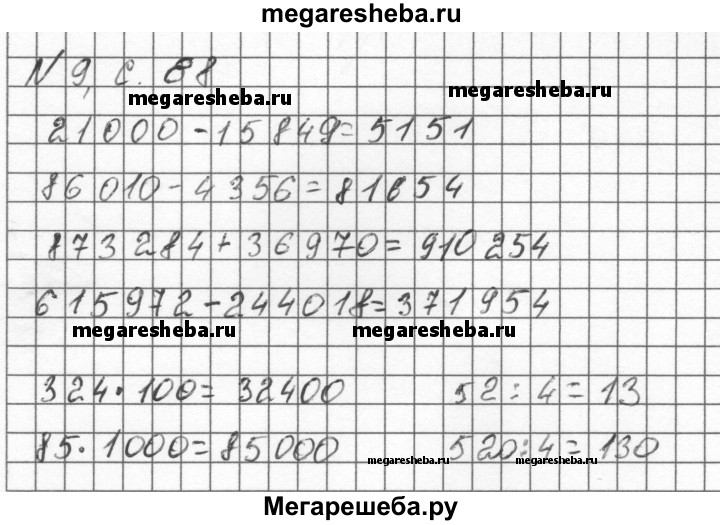 megaresheba.ru
N 9, с. 88
megaresheba.ru megaresheba.ru
21000-15849=5151
86010-4356=81654
873284+36970=910254
615972-244018=371954
megaresheba.ru megaresheba.ru
324·100=32400 52:4=13
85·1000=85000 520:4=130
megaresheba.ru megaresheba.ru
Мегарешеба.ру